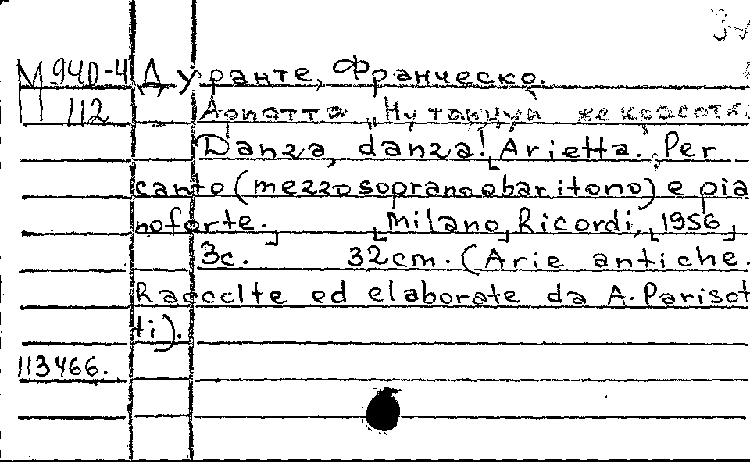 М 940-4 Дуранте, Франческо.
112 Ариэтта „Ну танцуй же красотк
Danza, danza! Arietta. Per
canto (mezzo soprano o baritono) e pia
noforte. Milano, Ricordi, 1956
3c. 32cm. (Arie antiche.
Raccolte ed elaborate da A. Parisot
ti).
113466.